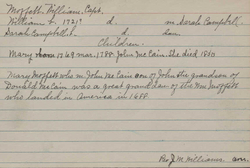 Moffett, William, Capt.
William b. 1729 d. m Sarah Campbell.
Sarah Campbell b. d. dau
Children.
Mary born 1769 mar. 1788 John McCain she died 1850
Mary Moffett who m John McCain son of John the grandson of
Donald McCain was a great granddau of the Wm Moffett
who landed in America in 1688.
Rev J. M. Williams.